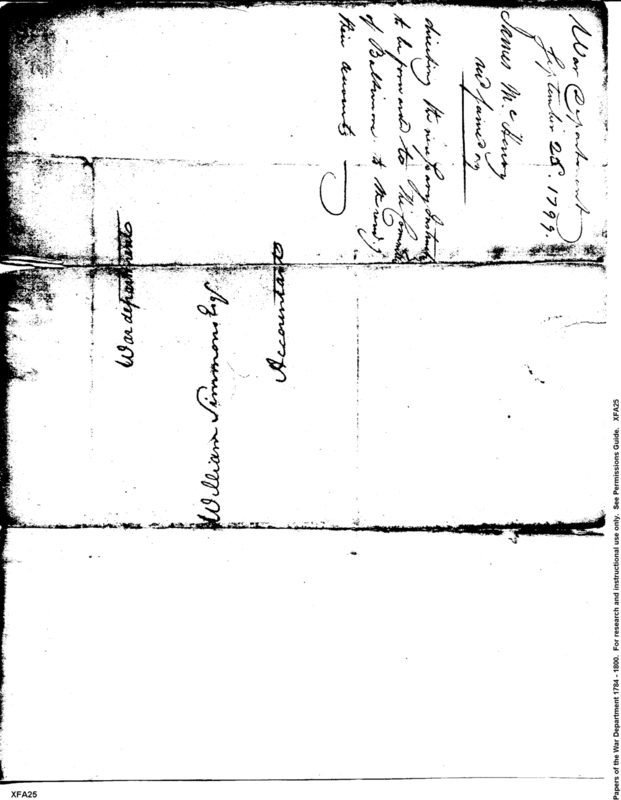 War Department
September 28. 1799.
James McHenry
directing the necessary Instruct
to be forwarded to the
of Baltimore to
their accounts
War department
William Simmons Esqr
Accountant
Papers of the War Department 1784 - 1800. For research and instructional use only. See Permissions Guide. XFA25
XFA25